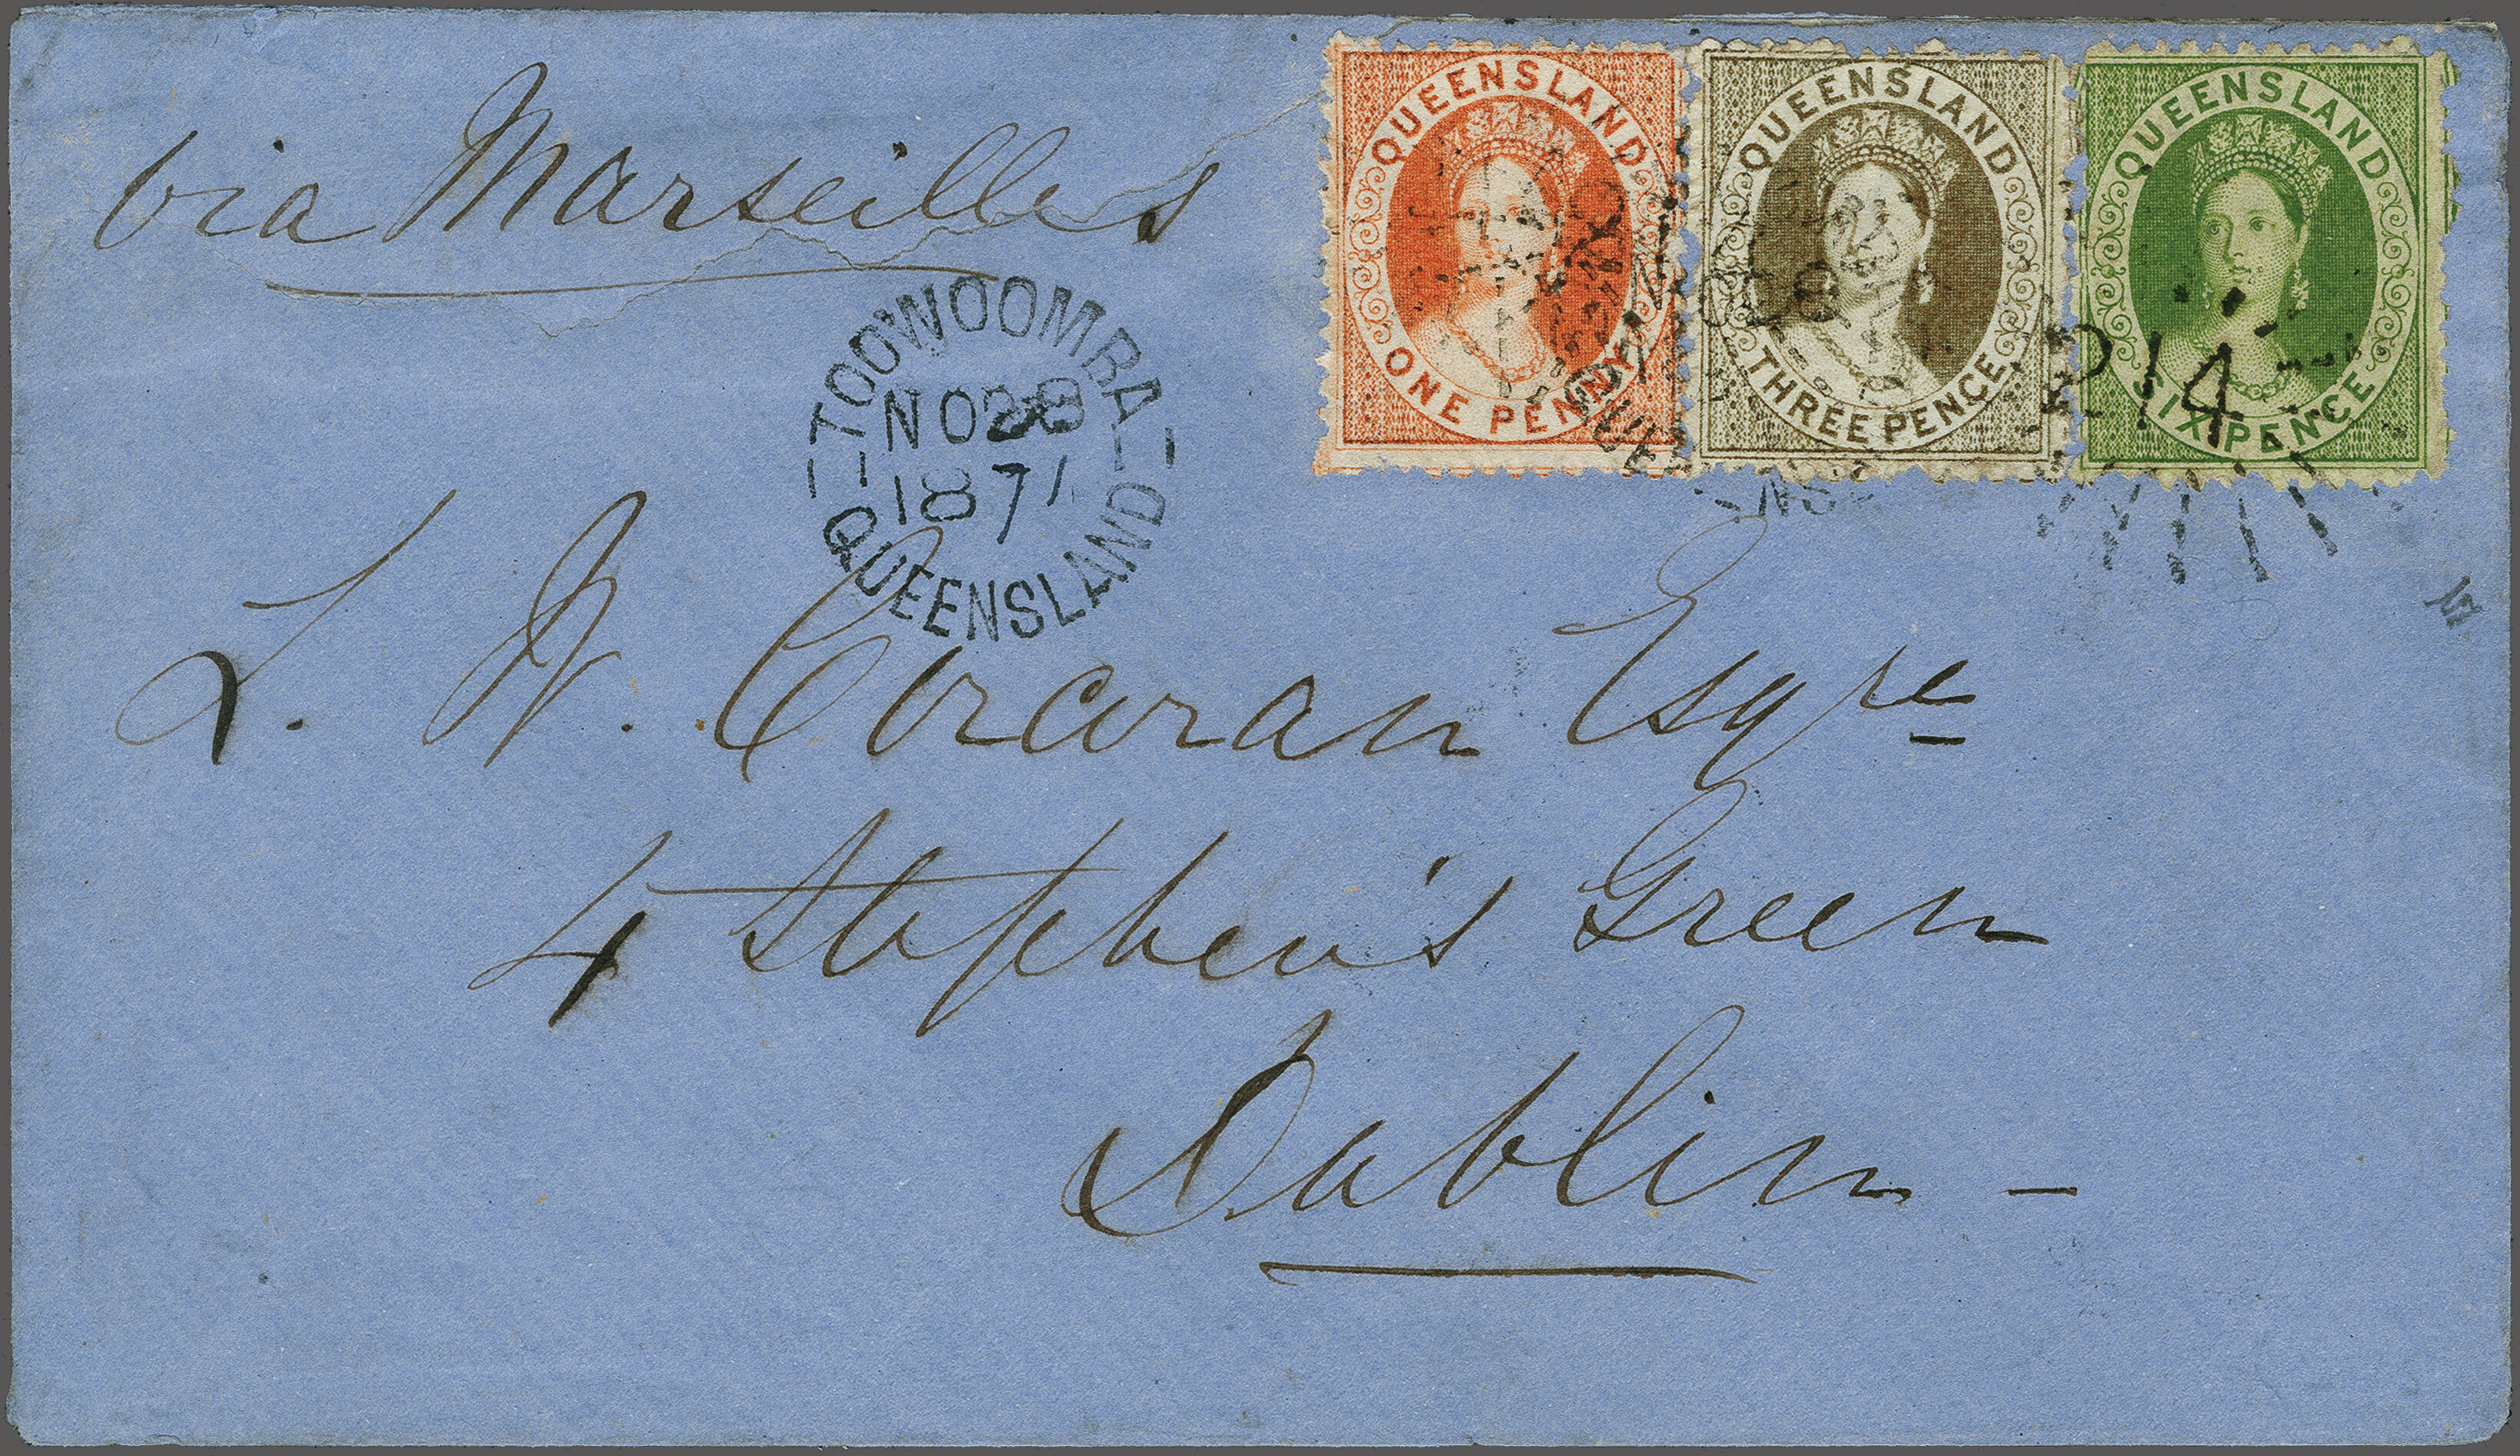 via Marseilles
QUEENSLAND
ONE PENNY
QUEENSLAND
THREE PENCE
QUEENSLAND
SIXPENCE
214
TOOWOOMBA
NO 28
1871
QUEENSLAND
L. W. Corcoran Esqre
4 Stephen's Green
Dublin -